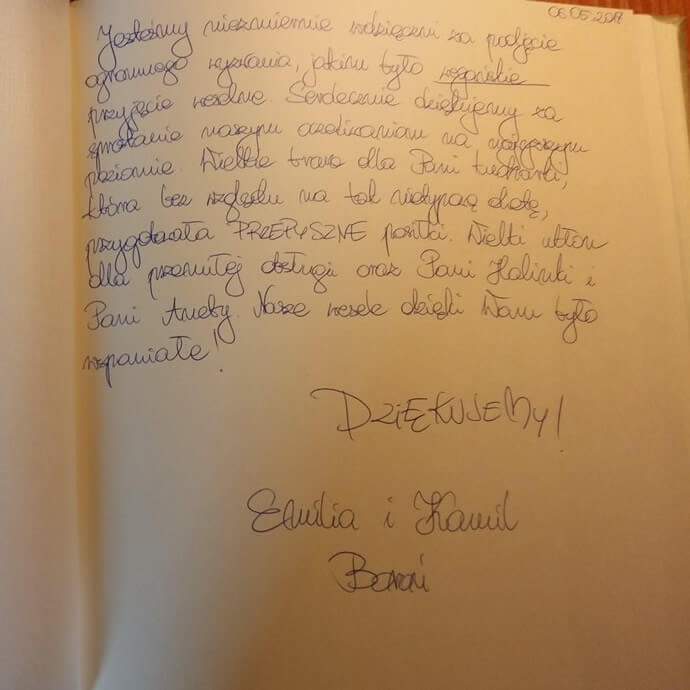 06.05.2017
Jesteśmy niezmiernie wdzięczni za podjęcie
ogromnego wyzwania, jakim było wegańskie
przyjęcie weselne. Serdecznie dziękujemy za
sprostanie naszym oczekiwaniom na najwyższym
poziomie. Wielkie brawa dla Pani kucharki,
która bez względu na tak nietypową dietę,
przygotowała PRZEPYSZNE posiłki. Wielki ukłon
dla przemiłej obsługi oraz Pani Halinki i
Pani Anety. Nasze wesele dzięki Wam było
wspaniałe!
DZIĘKUJEMY!
Emilia i Kamil